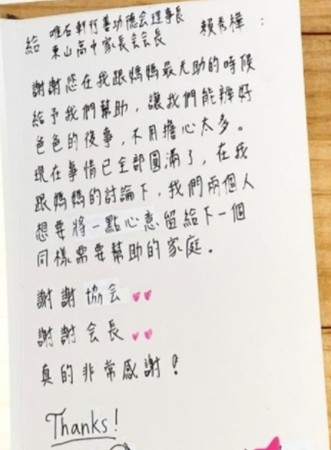 給 唯石軒行善功德会理事長
東山高中家長会会長 賴秀樺：
謝謝您在我跟媽媽最无助的時候
給予我們幫助，讓我們能辦好
爸爸的後事，不用擔心太多。
現在事情已全部圓滿了，在我
跟媽媽的討論下，我們兩個人
想要將一點心意留給下一個
同樣需要幫助的家庭。
謝謝協会
謝謝会長
真的非常感謝！
Thanks!